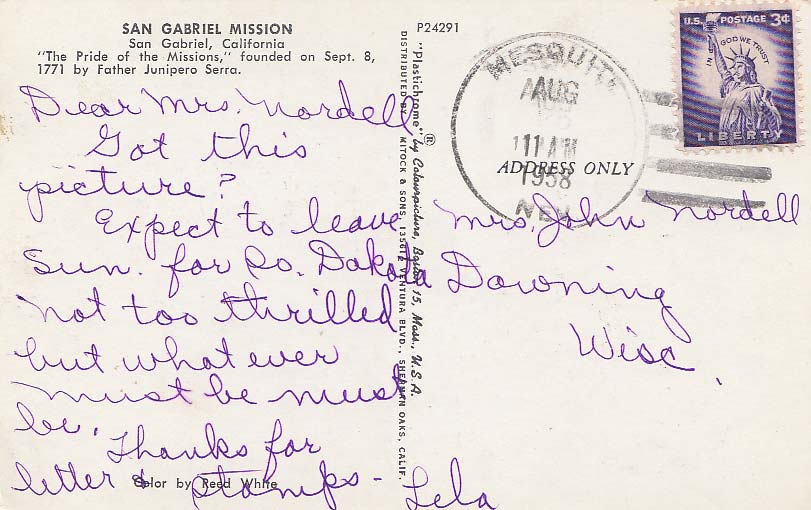 SAN GABRIEL MISSION
San Gabriel, California
"The Pride of the Missions," founded on Sept. 8,
1771 by Father Junipero Serra.
Dear Mrs. Nordell,
Got this
picture?
Expect to leave
Sun. for So. Dakota
not too thrilled
but what ever
must be must
be. Thanks for
letter & stamps -
Lela
Color by Reed White
P24291
"Plastichrome"® by Colourpicture, Boston 15, Mass., U.S.A.
DISTRIBUTED BY MITOCK & SONS, 13561 VENTURA BLVD., SHERMAN OAKS, CALIF.
MESQUITE
AUG
11 AM
1958
NEV.
U.S. POSTAGE 3¢
IN GOD WE TRUST
LIBERTY
ADDRESS ONLY
Mrs. John Nordell
Downing
Wisc.